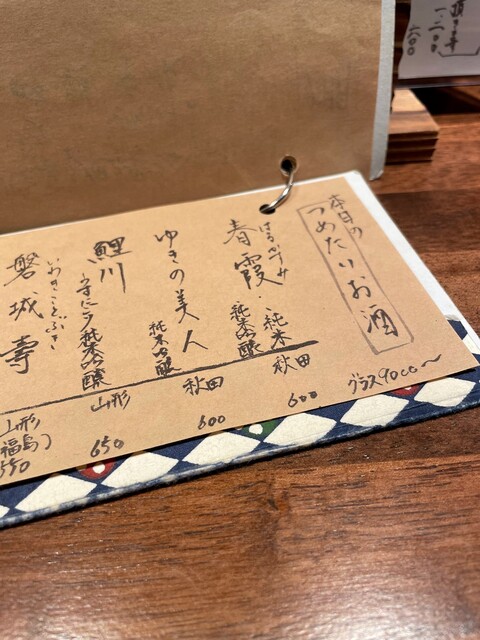 本日の
つめたいお酒
グラス90cc〜
はるかすみ
春霞
・純米
・純米吟醸
秋田
600
ゆきの美人
純米吟醸
秋田
600
鯉川
純米吟醸
山形
650
いわきことぶき
磐城壽
山形
(福島)
550